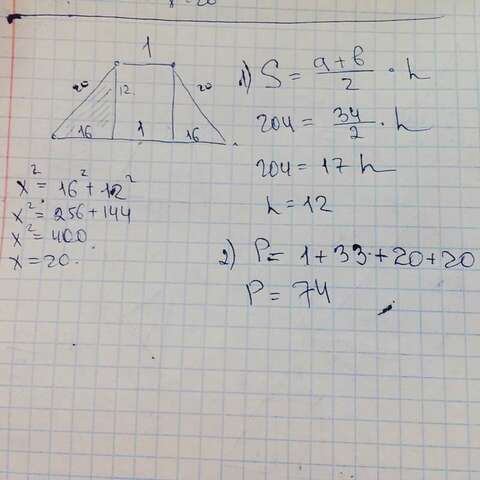 x=20
1
20
12
20
16
1
16
x² = 16² + 12²
x² = 256 + 144
x² = 400.
x = 20.
1) S = (a+b)/2 · h
204 = 34/2 · h
204 = 17 h
h = 12
2) P = 1 + 33 + 20 + 20
P = 74